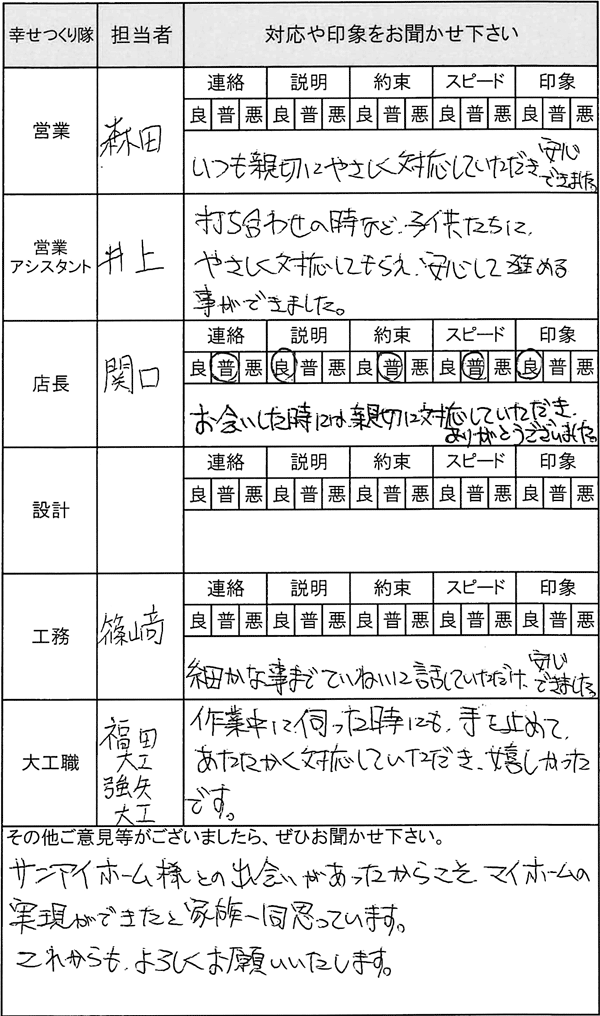 幸せつくり隊 担当者 対応や印象をお聞かせ下さい
営業 森田
連絡 説明 約束 スピード 印象
良 普 悪 良 普 悪 良 普 悪 良 普 悪 良 普 悪
いつも親切にやさしく対応していただき安心
できました。
営業
アシスタント 井上
打ち合わせの時など、子供たちに、
やさしく対応してもらえ、安心して進める
事ができました。
店長 関口
連絡 説明 約束 スピード 印象
良 普 悪 良 普 悪 良 普 悪 良 普 悪 良 普 悪
お会いした時には、親切に対応していただき、
ありがとうございました。
設計
連絡 説明 約束 スピード 印象
良 普 悪 良 普 悪 良 普 悪 良 普 悪 良 普 悪
工務 篠﨑
連絡 説明 約束 スピード 印象
良 普 悪 良 普 悪 良 普 悪 良 普 悪 良 普 悪
細かな事までていねいに話していただけ、安心
できました。
大工職
福田
大工
強矢
大工
作業中に伺った時にも、手を止めて、
あたたかく対応していただき、嬉しかった
です。
その他ご意見等がございましたら、ぜひお聞かせ下さい。
サンアイホーム様との出会いがあったからこそ、マイホームの
実現ができたと家族一同思っています。
これからも、よろしくお願いいたします。